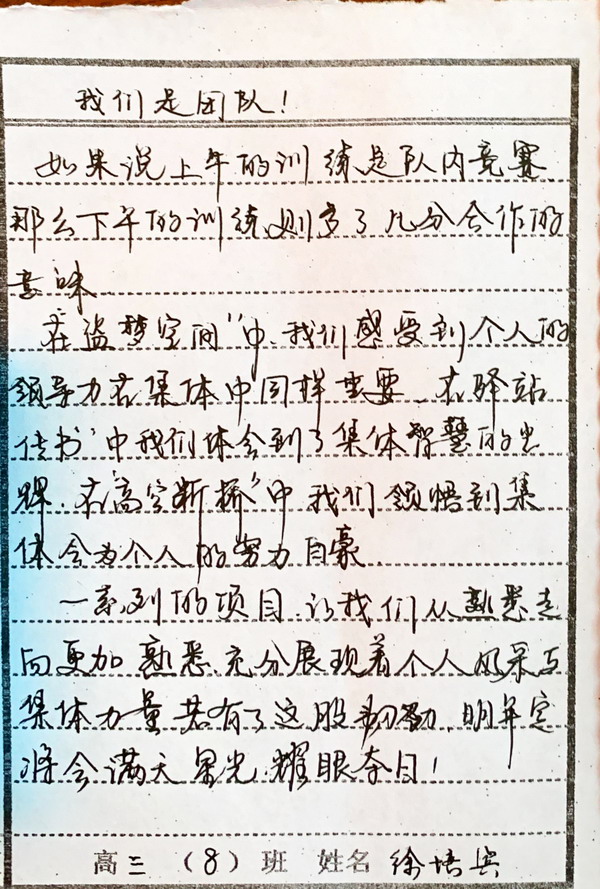 我们是团队！
如果说上午的训练是队内竞赛，
那么下午的训练则多了几分合作的
意味
在盗梦空间"中，我们感受到个人的
领导力在集体中同样重要，在驿站
传书"中我们体会到了集体智慧的光
辉，在"高空断桥"中我们领悟到集
体会为个人的努力自豪.
一系列的项目，让我们从熟悉走
向更加熟悉，充分展现着个人风采与
集体力量，若有了这股，明年定
将会满天星光，耀眼夺目！
高三（8）班 姓名 徐培